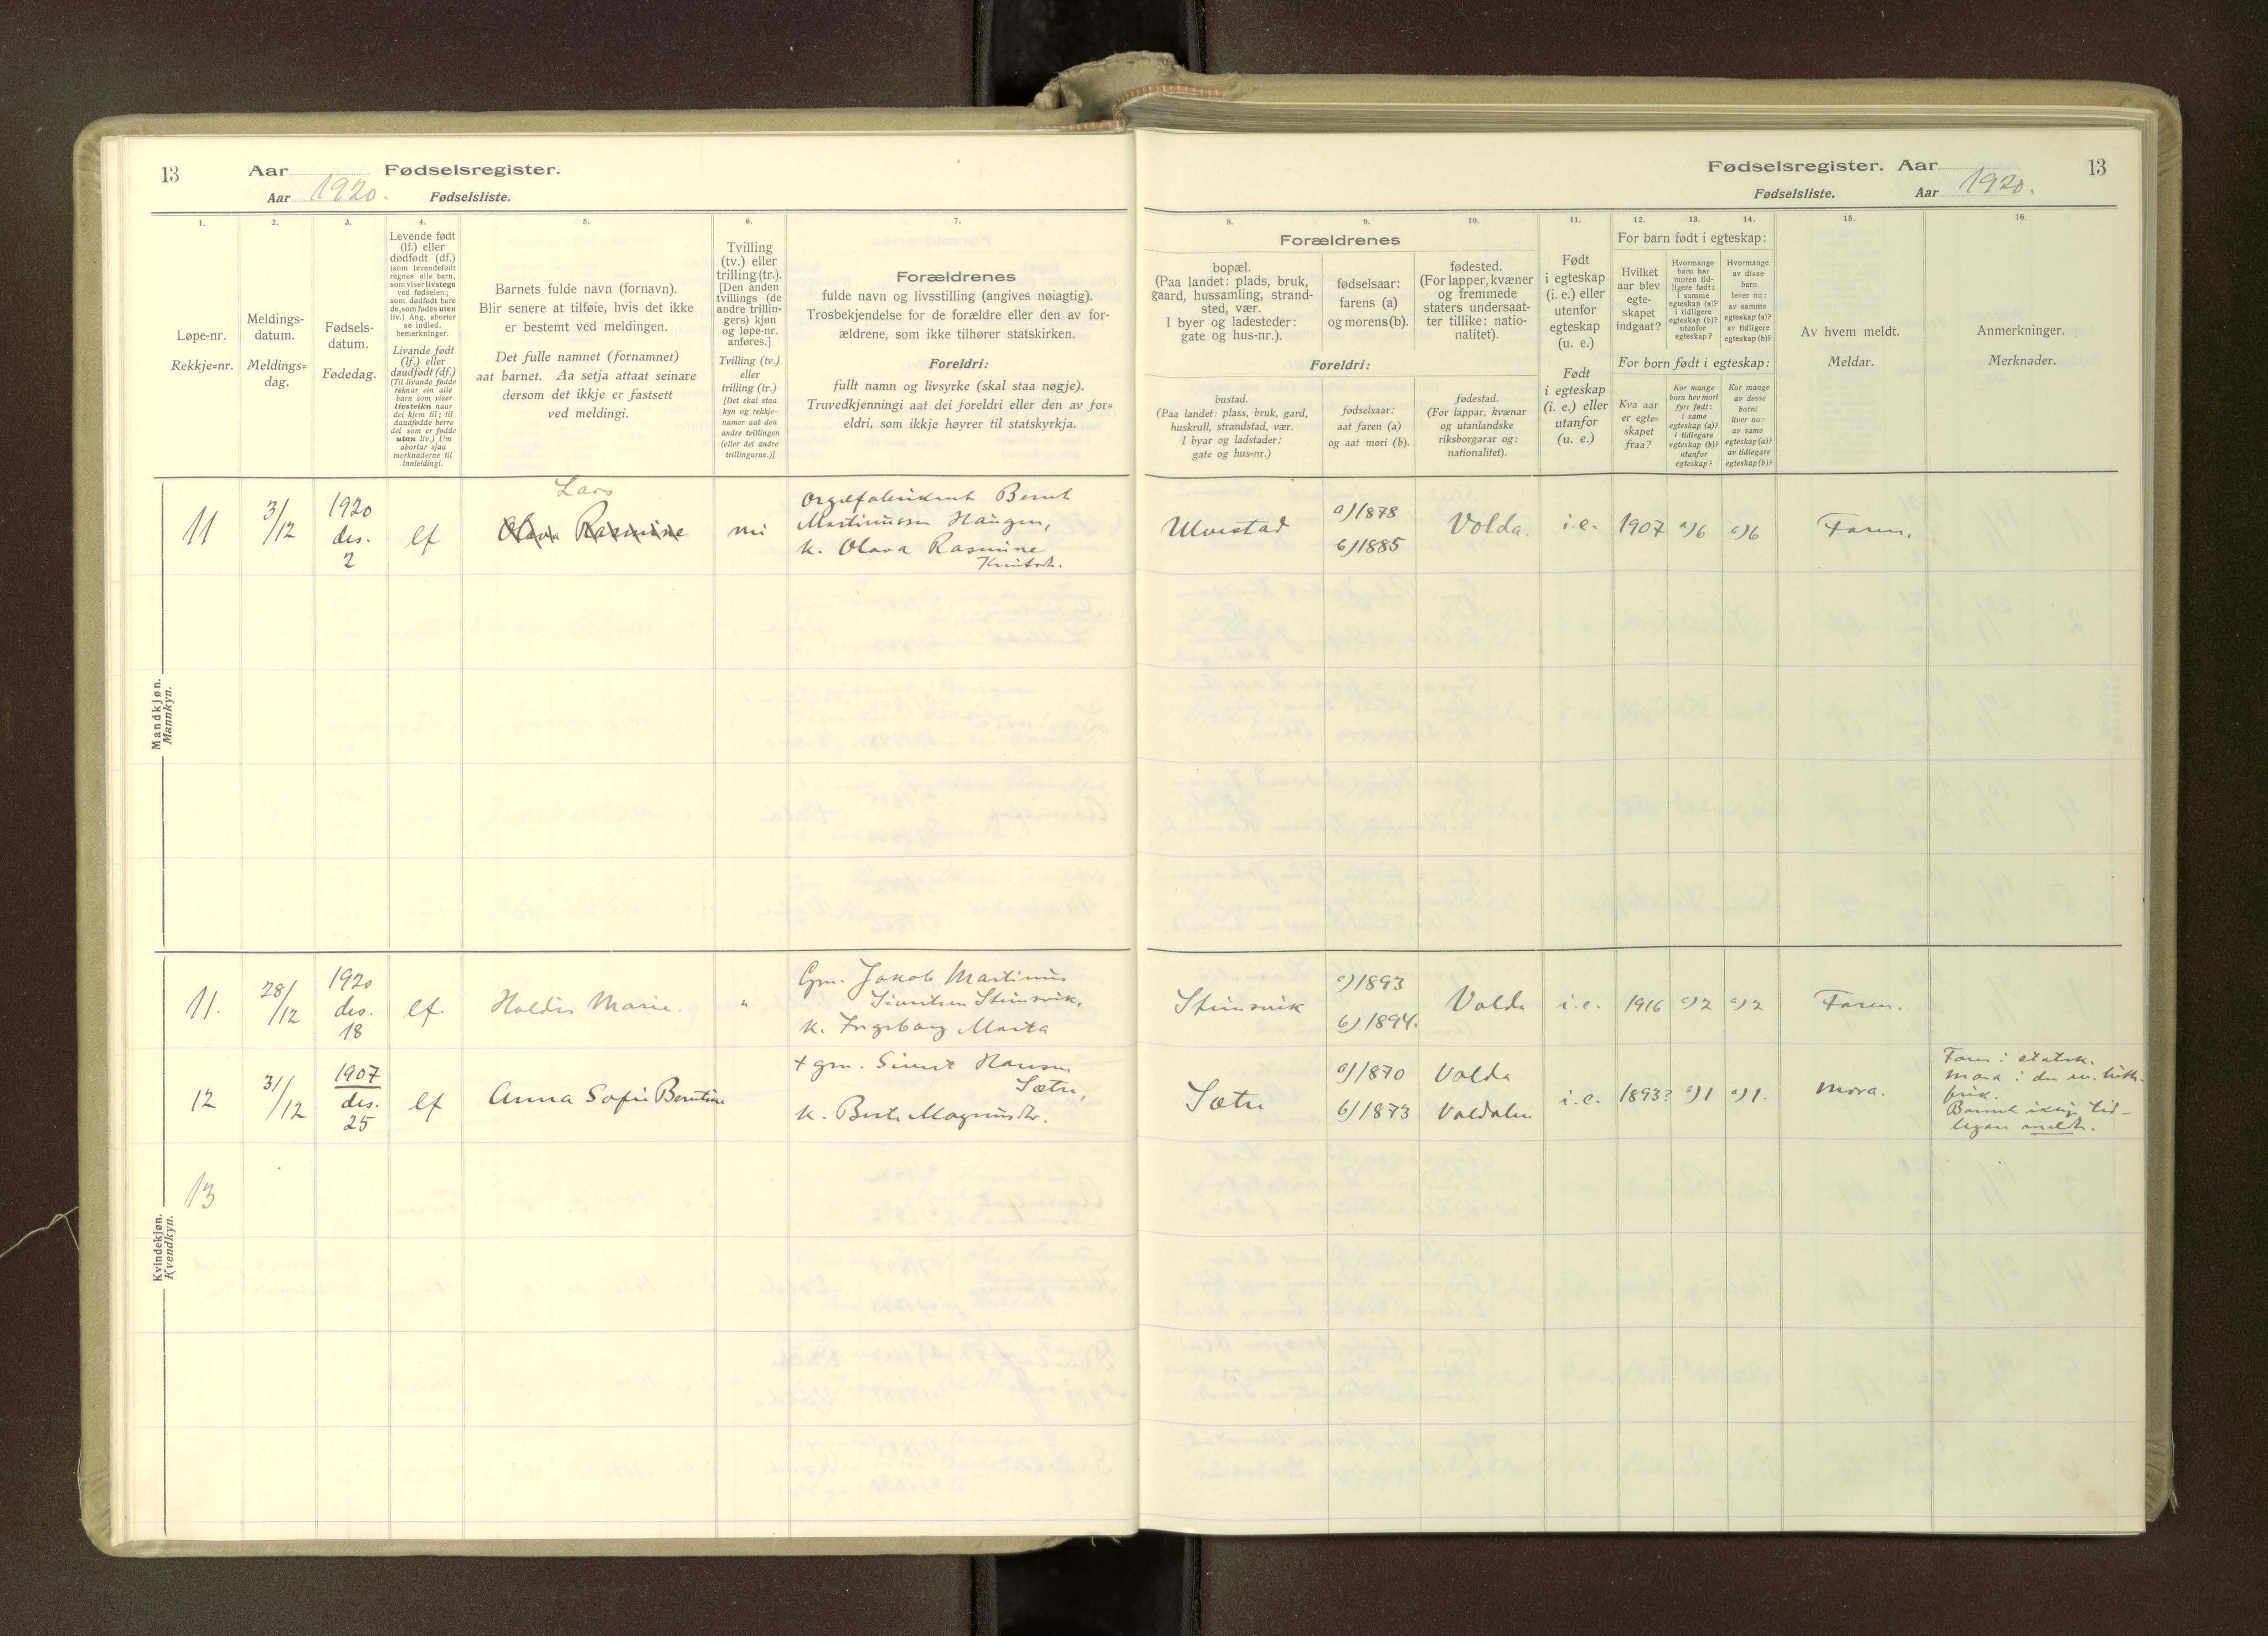 13 Aar Fødselsregister.
Aar 1920. Fødselsliste.
1.
Løpe-nr.
Rekkje=nr.
2.
Meldings-
datum.
Meldings=
dag.
3.
Fødsels-
datum.
Fødedag.
4.
Levende født
(lf.) eller
dødfødt (df.)
(som levendefødt
regnes alle barn,
som viser livstegn
ved fødselen;
som dødfødt bare
de, som fødes uten
liv.) Ang. aborter
se indled.
bemerkninger.
Livande født
(lf.) eller
daudfødt (df.)
(Til livande fødde
reknar ein alle
barn som viser
livsteikn naar
dei kjem til; til
daudfødde berre
dei som er fødde
utan liv.) Um
abortar sjaa
merknaderne til
innleidingi.
5.
Barnets fulde navn (fornavn).
Blir senere at tilføie, hvis det ikke
er bestemt ved meldingen.
Det fulle namnet (fornamnet)
aat barnet. Aa setja attaat seinare
dersom det ikkje er fastsett
ved meldingi.
6.
Tvilling
(tv.) eller
trilling (tr.).
[Den anden
tvillings (de
andre trillin-
gers) kjøn
og løpe-nr.
anføres.]
Tvilling (tv.)
eller
trilling (tr.)
[Det skal staa
kyn og rekkje-
numer aat den
andre tvillingen
(eller dei andre
trillingarne.)]
7.
Forældrenes
fulde navn og livsstilling (angives nøiagtig).
Trosbekjendelse for de forældre eller den av for-
ældrene, som ikke tilhører statskirken.
Foreldri:
fullt namn og livsyrke (skal staa nøgje).
Truvedkjenningi aat dei foreldri eller den av for=
eldri, som ikkje høyrer til statskyrkja.
Mandkjøn.
Mannkyn.
11 3/12 1920 des. 2 lf
Lars
Olava Rasmine
Orgelfabrikant Bernt
Martinussen Haugen,
k. Olava Rasmine
Knutsdt.
Kvindekjøn.
Kvendkyn.
11. 28/12 1920 des. 18 lf. Haldis Marie. "
Gm. Jakob Martinus
Sivertsen Steinsvik,
k. Ingeborg Marta
12 31/12 1907 des. 25 lf Anna Sofie Berntine
+ gm. Sivert Hansen
Sætre,
k. Berte Magnusdtr.
13
Fødselsregister. Aar 13
Fødselsliste. Aar 1920.
8.
Forældrenes
bopæl.
(Paa landet: plads, bruk,
gaard, hussamling, strand-
sted, vær.
I byer og ladesteder:
gate og hus-nr.).
Foreldri:
bustad.
(Paa landet: plass, bruk, gard,
huskrull, strandstad, vær.
I byar og ladstader:
gate og hus=nr.)
9.
fødselsaar:
farens (a)
og morens (b).
fødselsaar:
aat faren (a)
og aat mori (b).
10.
fødested.
(For lapper, kvæner
og fremmede
staters undersaat-
ter tillike: natio-
nalitet).
fødestad.
(For lappar, kvænar
og utanlandske
riksborgarar og:
nationalitet).
11.
Født
i egteskap
(i. e.) eller
utenfor
egteskap
(u. e.)
Født
i egteskap
(i. e.) eller
utanfor
(u. e.)
For barn født i egteskap:
12.
Hvilket
aar blev
egte-
skapet
indgaat?
13.
Hvormange
barn har
moren tid-
ligere født:
i samme
egteskap (a)?
i tidligere
egteskap (b)?
utenfor
egteskap?
14.
Hvormange
av disse
barn
lever nu:
av samme
egteskap (a)?
av tidligere
egteskap (b)?
For born født i egteskap:
Kva aar
er egte-
skapet
fraa?
Kor mange
born hev mori
fyrr født:
i same
egteskap (a)?
i tidlegare
egteskap (b)?
utanfor
egteskap?
Kor mange
av desse
borni
liver no:
av same
egteskap (a)?
av tidlegare
egteskap (b)?
15.
Av hvem meldt.
Meldar.
16.
Anmerkninger.
Merknader.
Ulvestad a) 1878 b) 1885 Volda. i.e. 1907 a) 6 a) 6 Faren.
Steinsvik a) 1893 b) 1894. Volda i.e. 1916 a) 2 a) 2 Faren.
Sætre a) 1870 Volda b) 1873 Valdalen i.e. 1893? a) 1 a) 1. Mora.
Faren i statsk.
Mora i den ev. luth.
frik.
Barnet ikkje tid-
legare meldt.